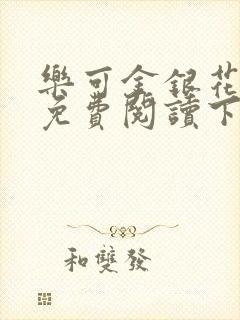 樂可金銀花
免費閱讀下
和雙發